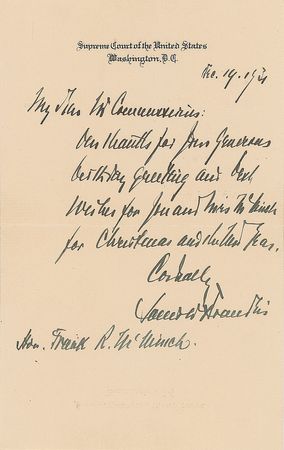 Supreme Court of the United States
Washington, D.C.
Dec. 19, 19
My dear Mr Commissioner:
Our thanks for your generous
birthday greeting and best
wishes for you and Mrs McNinch
for Christmas and the New Year.
Cordially
Louis D Brandeis
Hon. Frank R. McNinch.